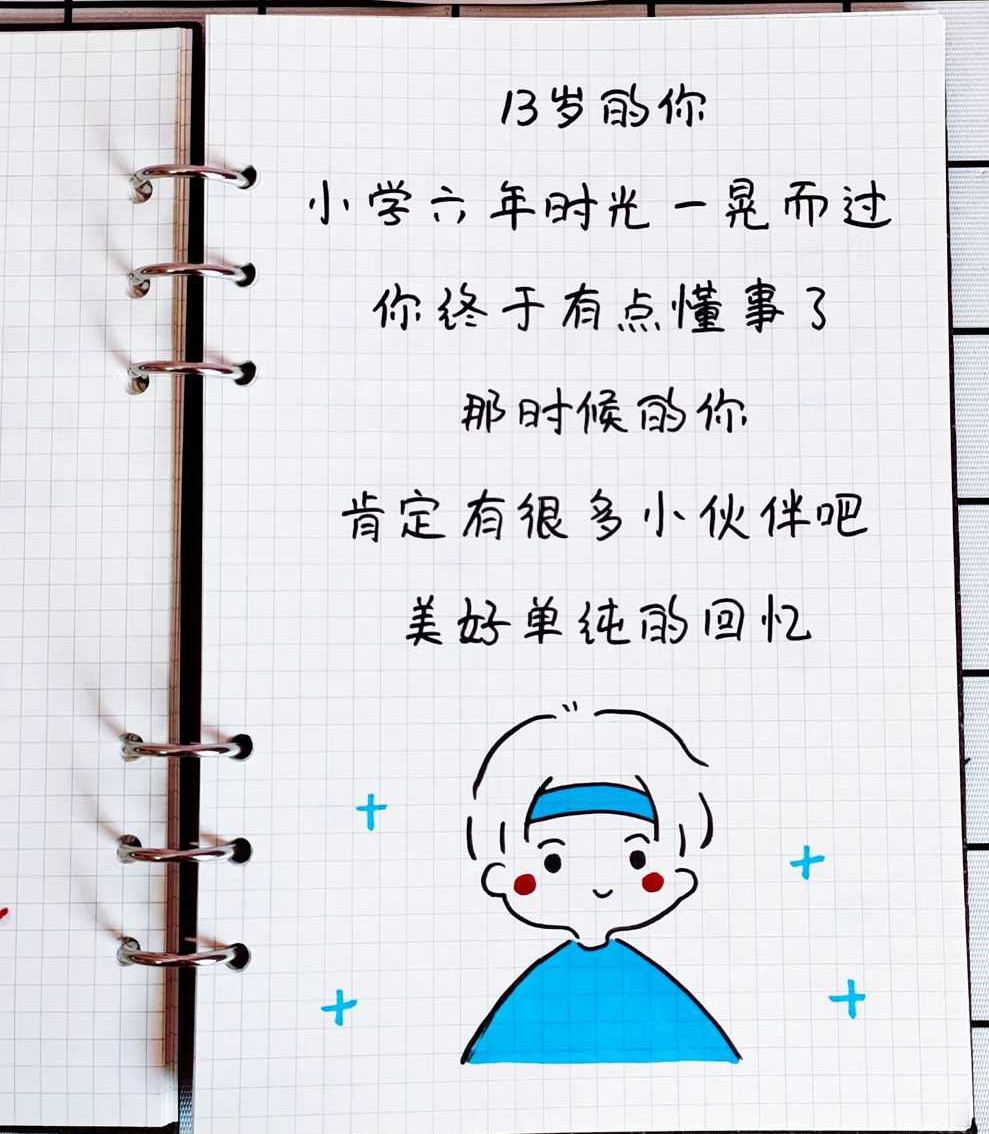 13岁的你
小学六年时光一晃而过
你终于有点懂事了
那时候的你
肯定有很多小伙伴吧
美好单纯的回忆